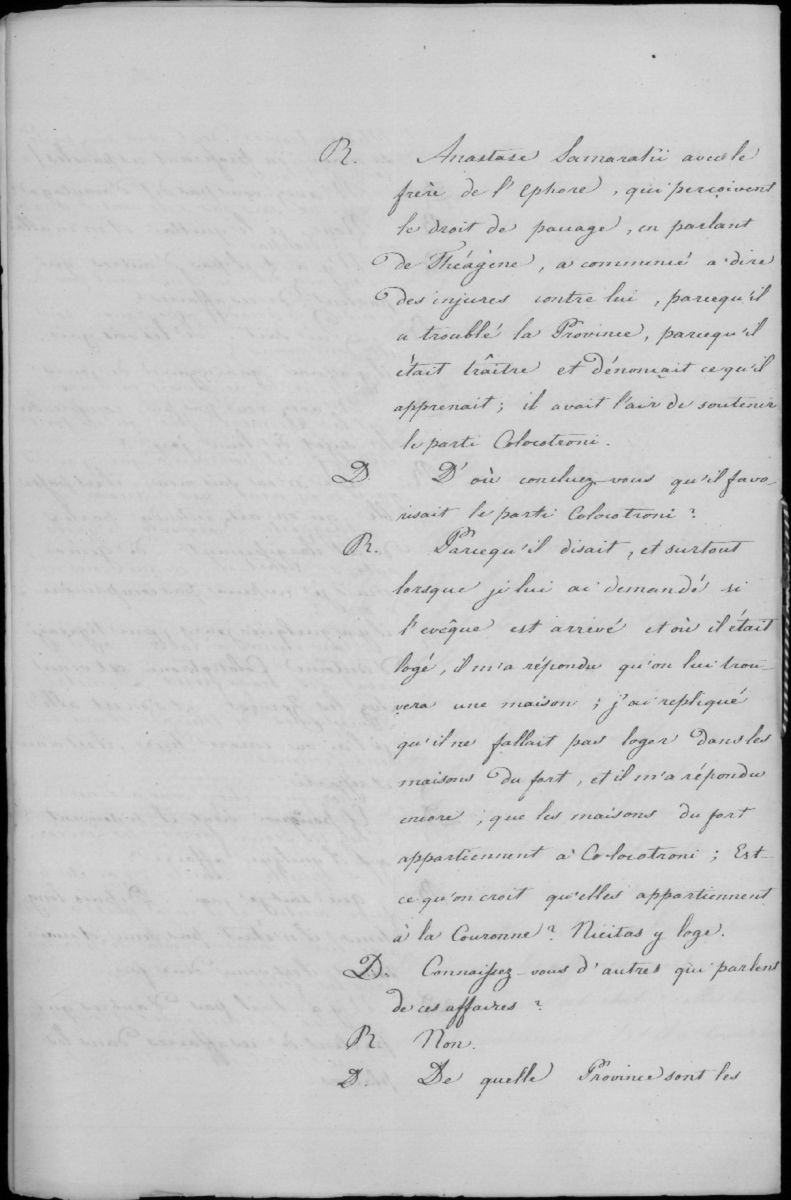 R. Anastase Samarakii avec le
frère de l'Ephore, qui perçoivent
le droit de pacage, en parlant
de Théagène, a commencé a dire
des injures contre lui, parcequ'il
a troublé la Province, parcequ'il
était traître et dénonçait ce qu'il
apprenait; il avait l'air de soutenir
le parti Colocotroni.
D. D'où concluez-vous qu'il favo-
risait le parti Colocotroni?
R. Parcequ'il disait, et surtout
lorsque je lui ai demandé si
l'evêque est arrivé et où il était
logé, il m'a répondu qu'on lui trou-
vera une maison; j'ai repliqué
qu'il ne fallait pas loger dans les
maisons du fort, et il m'a répondu
encore; que les maisons du fort
appartiennent à Colocotroni; Est-
ce qu'on croit qu'elles appartiennent
à la Couronne? Nicitas y loge.
D. Connaissez-vous d'autres qui parlent
de ces affaires?
R Non.
D. De quelle Province sont les